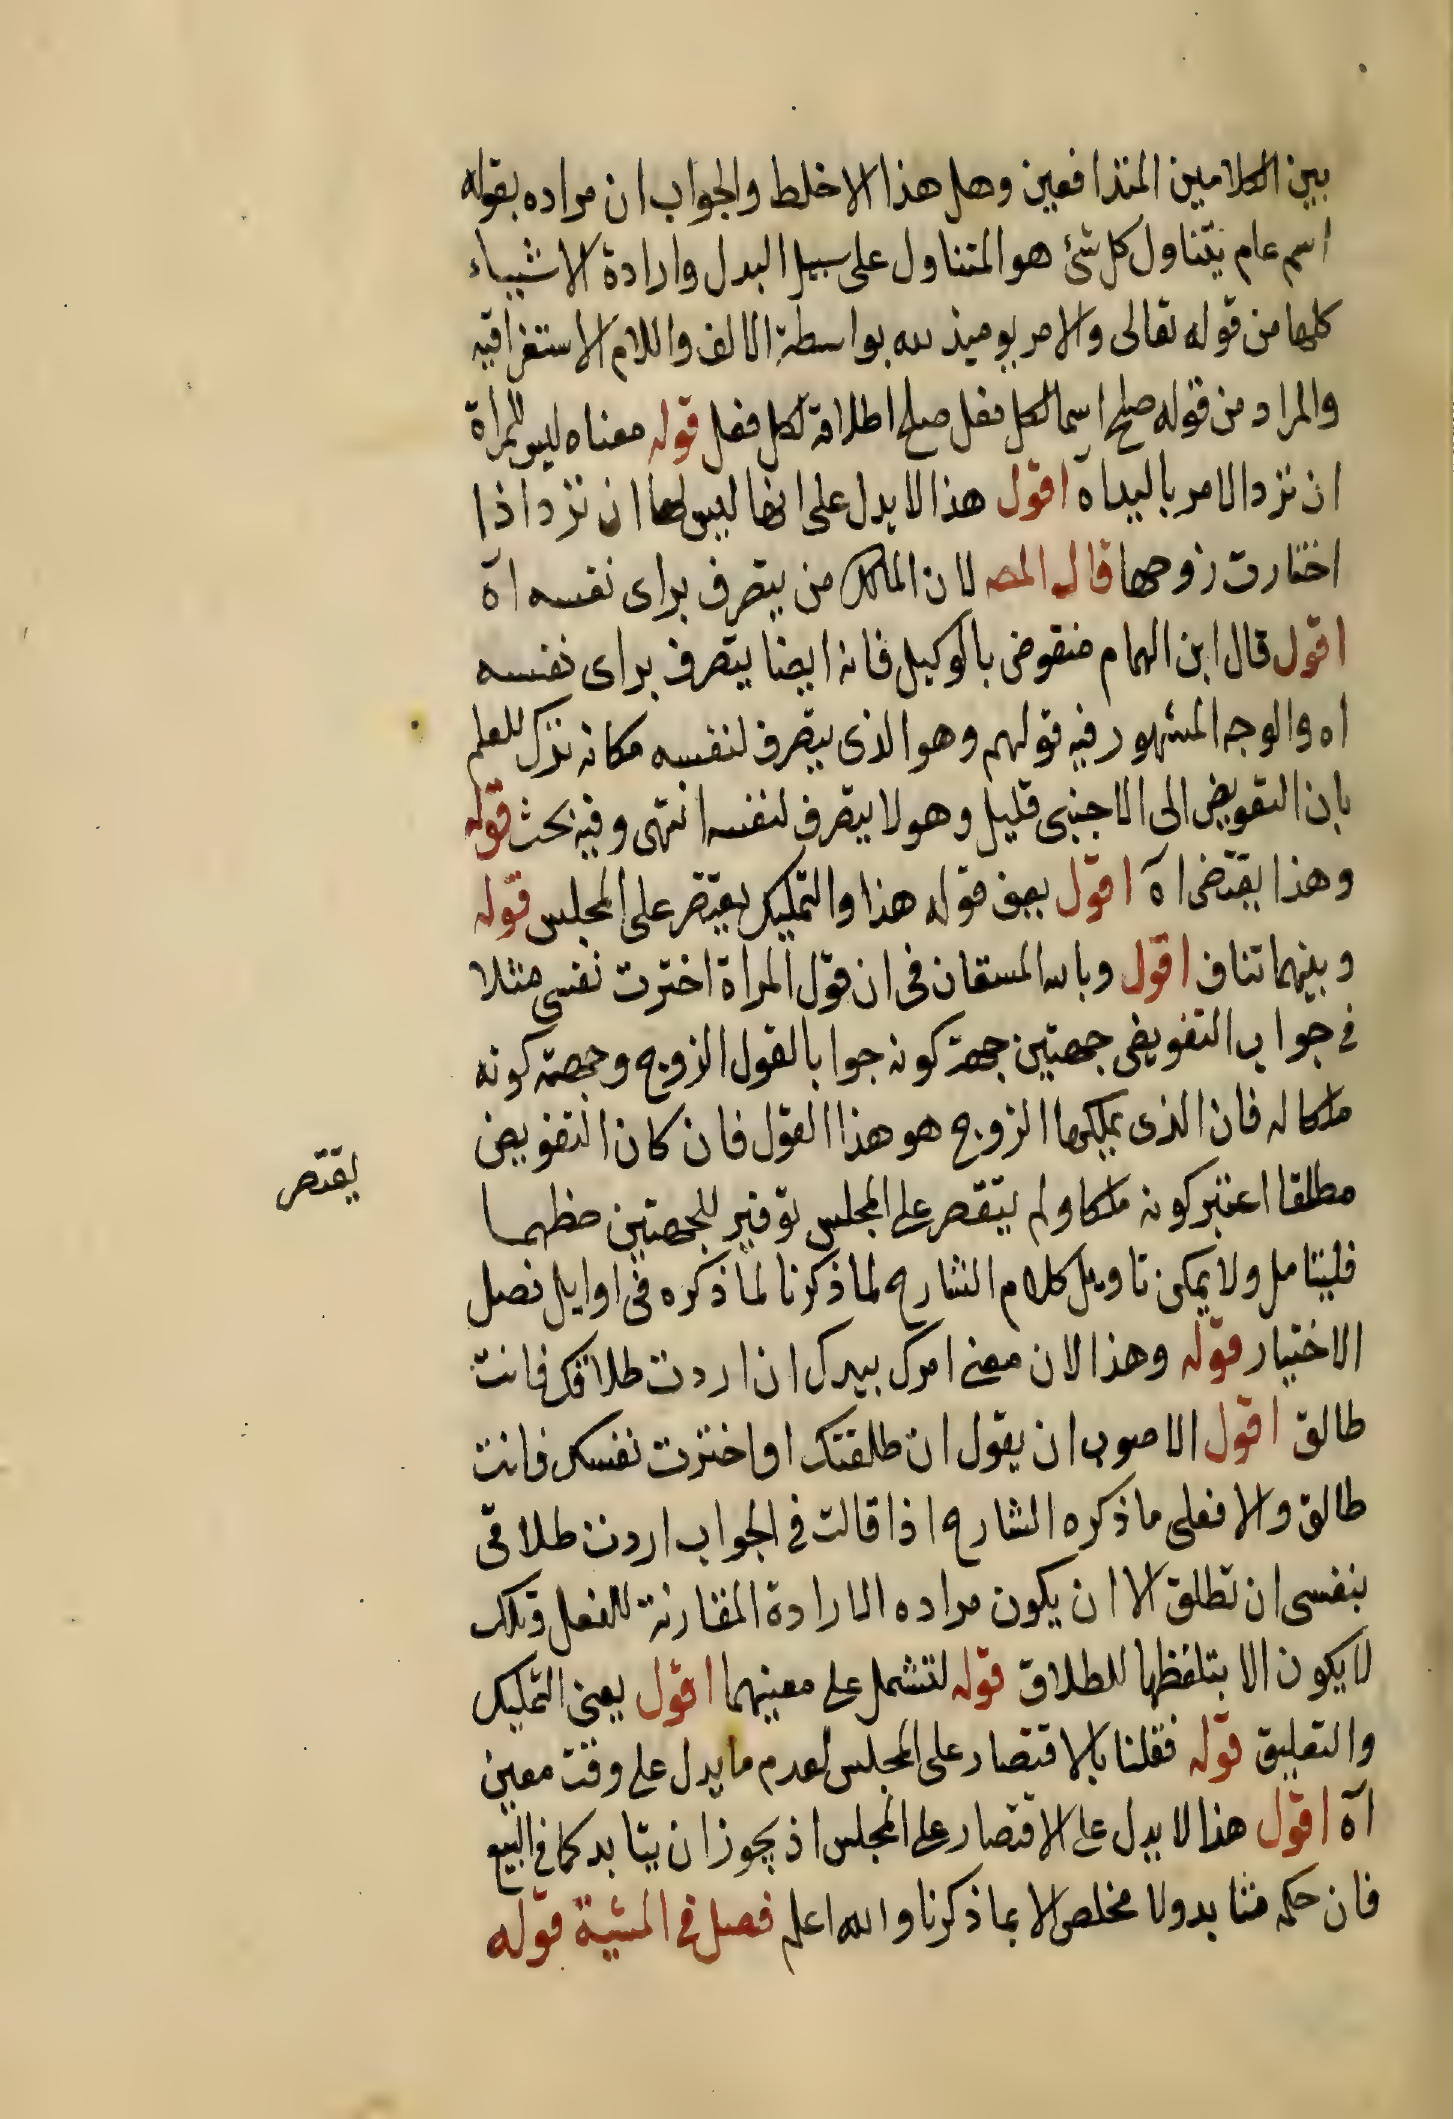 بين الكلامين المتدافعين وهل هذا الاخلط والجواب ان مراده بقوله
اسم عام يتناول كل شئ هو المتناول على سبيل البدل وارادة الاشياء
كلها من قوله تعالى والامر يوميذ لله بواسطة الالف واللام الاستغراقيه
والمراد من قوله صلح اسما لكل فعل صلح اطلاقه لكل فعل قوله معناه ليس للمراة
ان ترد الامر باليد اه اقول هذا لا يدل على انها ليس لها ان ترد اذا
اختارت زوجها قال المصـ لان المالك من يتصرف براى نفسه اه
اقول قال ابن الهمام منقوض بالوكيل فانه ايضا يتصرف براى نفسه
اه والوجه المشهور فيه قولهم وهو الذى يتصرف لنفسه مكانه ترك للعلم
بان التفويض الى الاجنبى قليل وهو لا يتصرف لنفسه انتهى وفيه بحث قوله
وهذا يقتضى اه اقول يعنى قوله هذا والتمليك يقتصر على المجلس قوله
وبينهما تناف اقول وبالله المستعان فى ان قول المراة اخترت نفسى مثلا
فى جواب التفويض جهتين جهة كونه جوابا لقول الزوج وجهة كونه
ملكا له فان الذى يملكها الزوج هو هذا القول فان كان التفويض
مطلقا اعتبر كونه ملكا ولم يتقصر على المجلس توفير للجهتين حظهما
يقتصر
فليتامل ولا يمكن تاويل كلام الشارح لما ذكرنا لما ذكره فى اوايل فصل
الاختيار قوله وهذا لان معنى امرك بيدك ان اردت طلاقك فانت
طالق اقول الاصوب ان يقول ان طلقتك او اخترت نفسك فانت
طالق والا فعلى ما ذكره الشارح اذا قالت فى الجواب اردت طلاقى
بنفسى ان تطلق الا ان يكون مراده الارادة المقارنة للفعل وتلك
لا يكون الا بتلفظها للطلاق قوله لتشمل على معنيهما اقول يعنى التمليك
والتعليق قوله فقلنا بالاقتصار على المجلس لعدم ما يدل على وقت معين
اه اقول هذا لا يدل على الاقتصار على المجلس اذ يجوز ان يتابد كما فى البيع
فان حكمه متابد ولا مخلص الا بما ذكرنا والله اعلم فصل فى المشية قوله